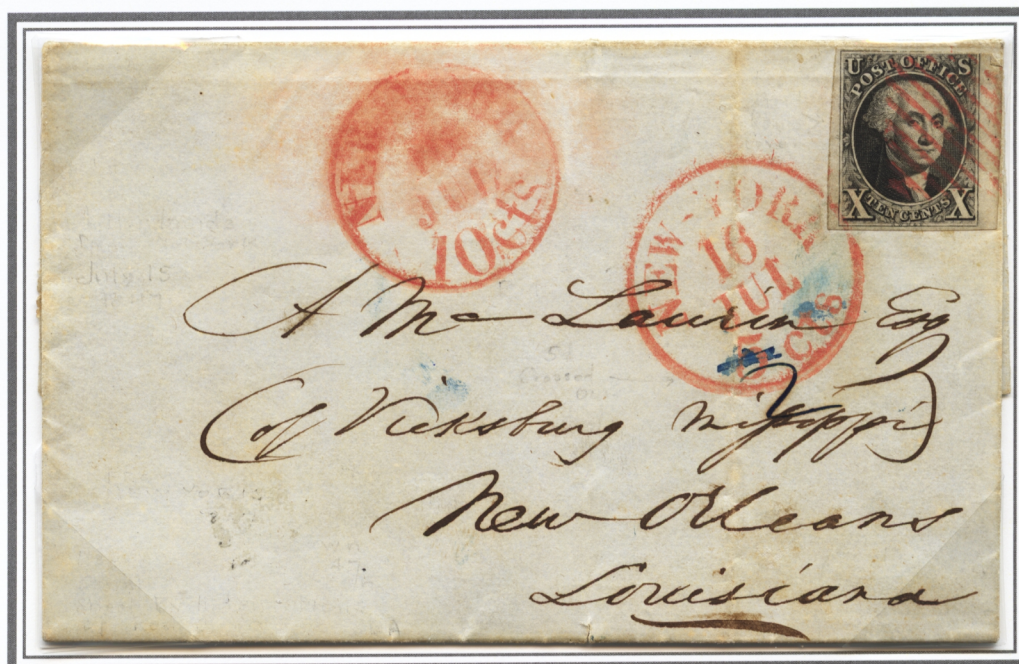 U S
POST OFFICE
X TEN CENTS X
NEW
JUL
10cts
NEW-YORK
16
JUL
5 cts
A Mc Laurin Esq
(of Vicksburg Missippi)
New Orleans
Louisiana
July 15
Erased